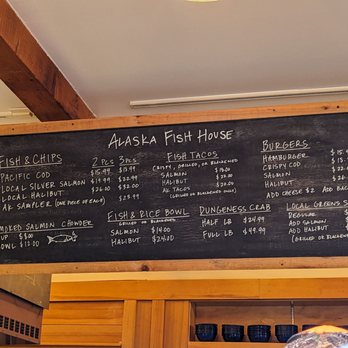 ALASKA FISH HOUSE
FISH & CHIPS
2 PCS 3 PCS
PACIFIC COD
LOCAL SILVER SALMON
LOCAL HALIBUT
AK SAMPLER (ONE PIECE OF EACH)
SMOKED SALMON CHOWDER
CUP
BOWL $12.00
FISH TACOS
CRISPY, GRILLED, OR BLACKENED
SALMON
HALIBUT
AK TACOS
(GRILLED OR BLACKENED ONLY)
FISH & RICE BOWL
GRILLED OR BLACKENED
SALMON $14.00
HALIBUT $24.00
DUNGENESS CRAB
HALF LB $24.99
FULL LB $49.99
BURGERS
HAMBURGER
CRISPY COD
SALMON
HALIBUT
ADD CHEESE $2 ADD
LOCAL GREENS
REGULAR
ADD SALMON
ADD HALIBUT
(GRILLED OR BLACKENED